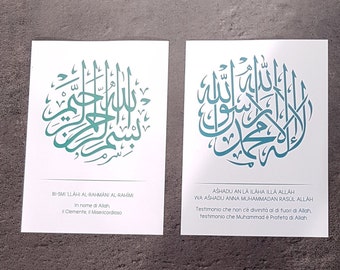 بسم الله الرحمن الرحيم
BI-SMI 'LLĀHI AL-RAḤMĀNI AL-RAḤĪMI
In nome di Allah,
il Clemente, il Misericordioso
لا إله إلا الله محمد رسول الله
AŠHADU AN LĀ ILĀHA ILLĀ ALLĀH
WA AŠHADU ANNA MUḤAMMADAN RASŪL ALLĀH
Testimonio che non c'è divinità al di fuori di Allah,
testimonio che Muhammad è Profeta di Allah